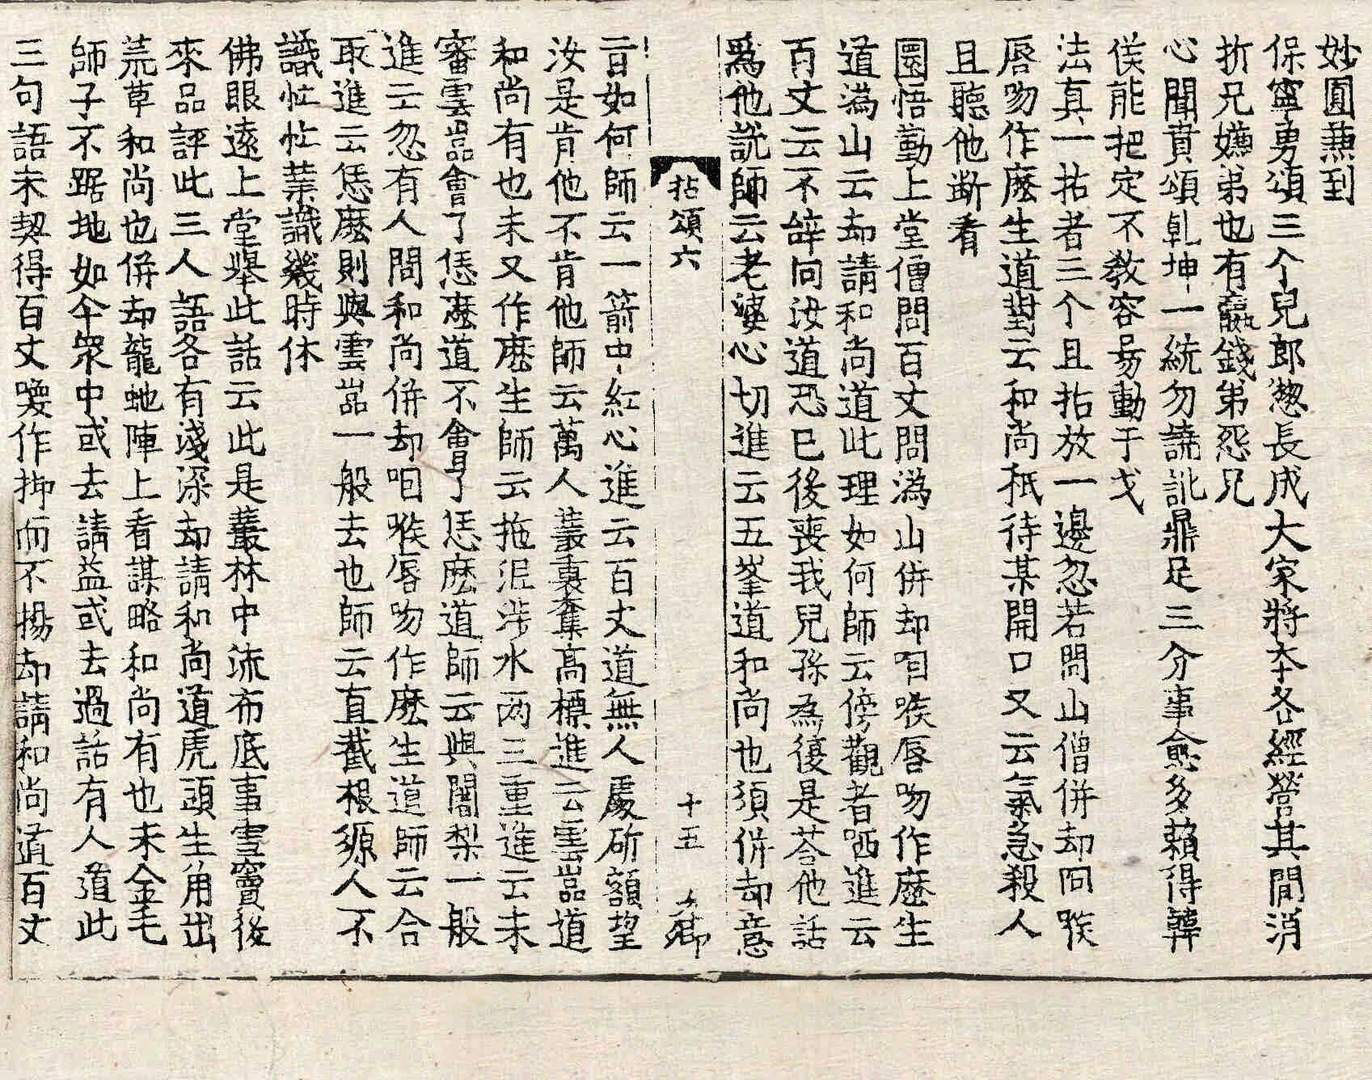 妙圓兼到
保寧勇頌三个兒郎惣長成大家將本各經營其間消
折兄嫌弟也有贏錢弟怨兄
心聞賁頌乹坤一統勿譊訛鼎足三分事愈多賴得韓
侯能把定不敎容昜動干戈
法真一拈者三个且拈放一邊忽若問山僧併却咽喉
唇吻作麽生道對云和尚秖待某開口又云氣急殺人
且聽他断看
圜悟勤上堂僧問百丈問潙山併却咽喉唇吻作麽生
道潙山云却請和尚道此理如何師云傍觀者哂進云
百丈云不辝向汝道恐已後喪我兒孫為復是荅他話
爲他説師云老婆心切進云五峯道和尚也須併却意
拈頌六 十五 卿
旨如何師云一箭中紅心進云百丈道無人處斫額望
汝是肯他不肯他師云萬人叢裏奪高標進云雲嵒道
和尚有也未又作麽生師云拖泥涉水两三重進云未
審雲嵒會了恁麽道不會了恁麽道師云與闍梨一般
進云忽有人問和尚併却咽喉唇吻作麽生道師云合
取進云恁麽則與雲嵒一般去也師云直截根源人不
識忙忙業識幾時休
佛眼遠上堂舉此話云此是叢林中流布底事雪竇後
來品評此三人語各有淺深却請和尚道虎頭生角出
荒草和尚也併却龍虵陣上看謀略和尚有也未金毛
師子不踞地如今衆中或去請益或去過話有人道此
三句語未契得百丈喚作抑而不揚却請和尚道百丈